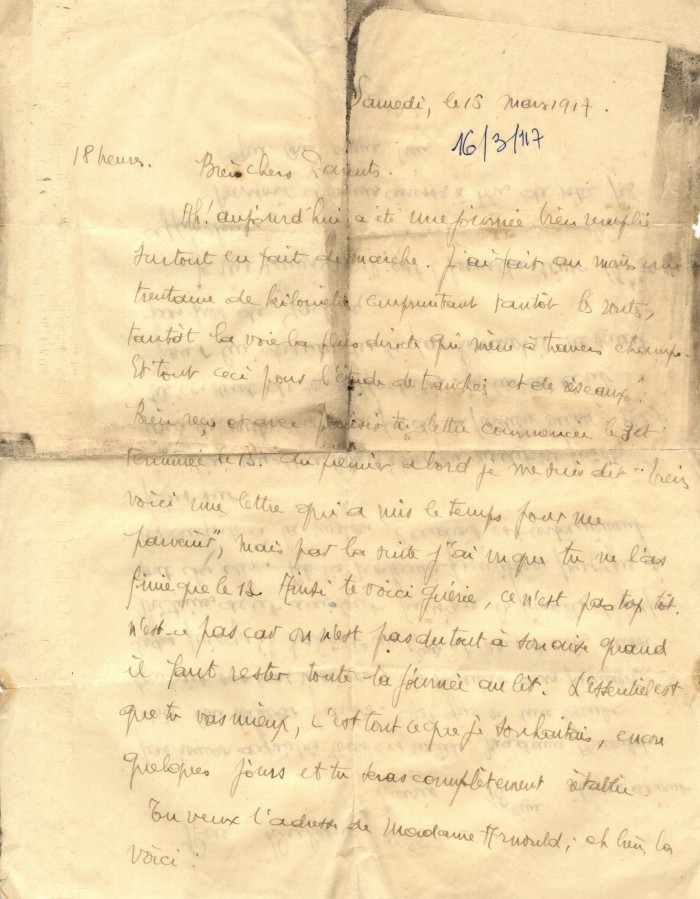 Samedi, le 15 mars 1917.
16/3/117
18 heures. Bien chers Parents.
Ah! aujourd'hui a été une journée bien remplie
surtout en fait de marche. J'ai fait au moins une
trentaine de kilomètres empruntant tantôt les routes,
tantôt la voie la plus directe qui mène à travers champs.
Et tout ceci pour l'étude de tranchées et de réseaux.
Bien reçu et avec plaisir ta lettre commencée le 9 et
terminée le 13. Au premier abord je me suis dit "
voici une lettre qui a mis le temps pour me
parvenir", mais par la suite j'ai vu que tu ne l'as
finie que le 13. Ainsi te voici guérie, ce n'est pas trop tôt.
n'est-ce pas car on n'est pas du tout à son aise quand
il faut rester toute la journée au lit. L'essentiel est
que tu vas mieux, c'est tout ce que je souhaitais, encore
quelques jours et tu seras complètement rétablie.
Tu veux l'adresse de Madame Arnould; eh bien la
voici: